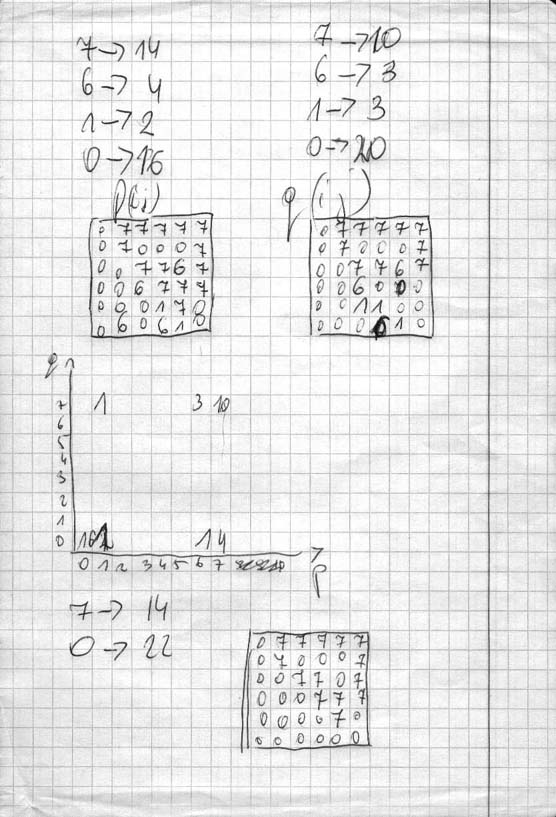 7 → 14
6 → 4
1 → 2
0 → 16
p(i,j)
0 7 7 7 7 7
0 7 0 0 0 7
0 0 7 7 6 7
0 0 6 7 7 7
0 0 0 1 7 0
0 6 0 6 1 0
7 → 10
6 → 3
1 → 3
0 → 20
q (i,j)
0 7 7 7 7 7
0 7 0 0 0 7
0 0 7 7 6 7
0 0 6 0 0 0
0 0 1 1 0 0
0 0 0 6 1 0
q
7 1 3 10
6
5
4
3
2
1
0 16 1 4
0 1 2 3 4 5 6 7
p
7 → 14
0 → 22
0 7 7 7 7 7
0 7 0 0 0 7
0 0 7 7 0 7
0 0 0 7 7 7
0 0 0 0 7 0
0 0 0 0 0 0